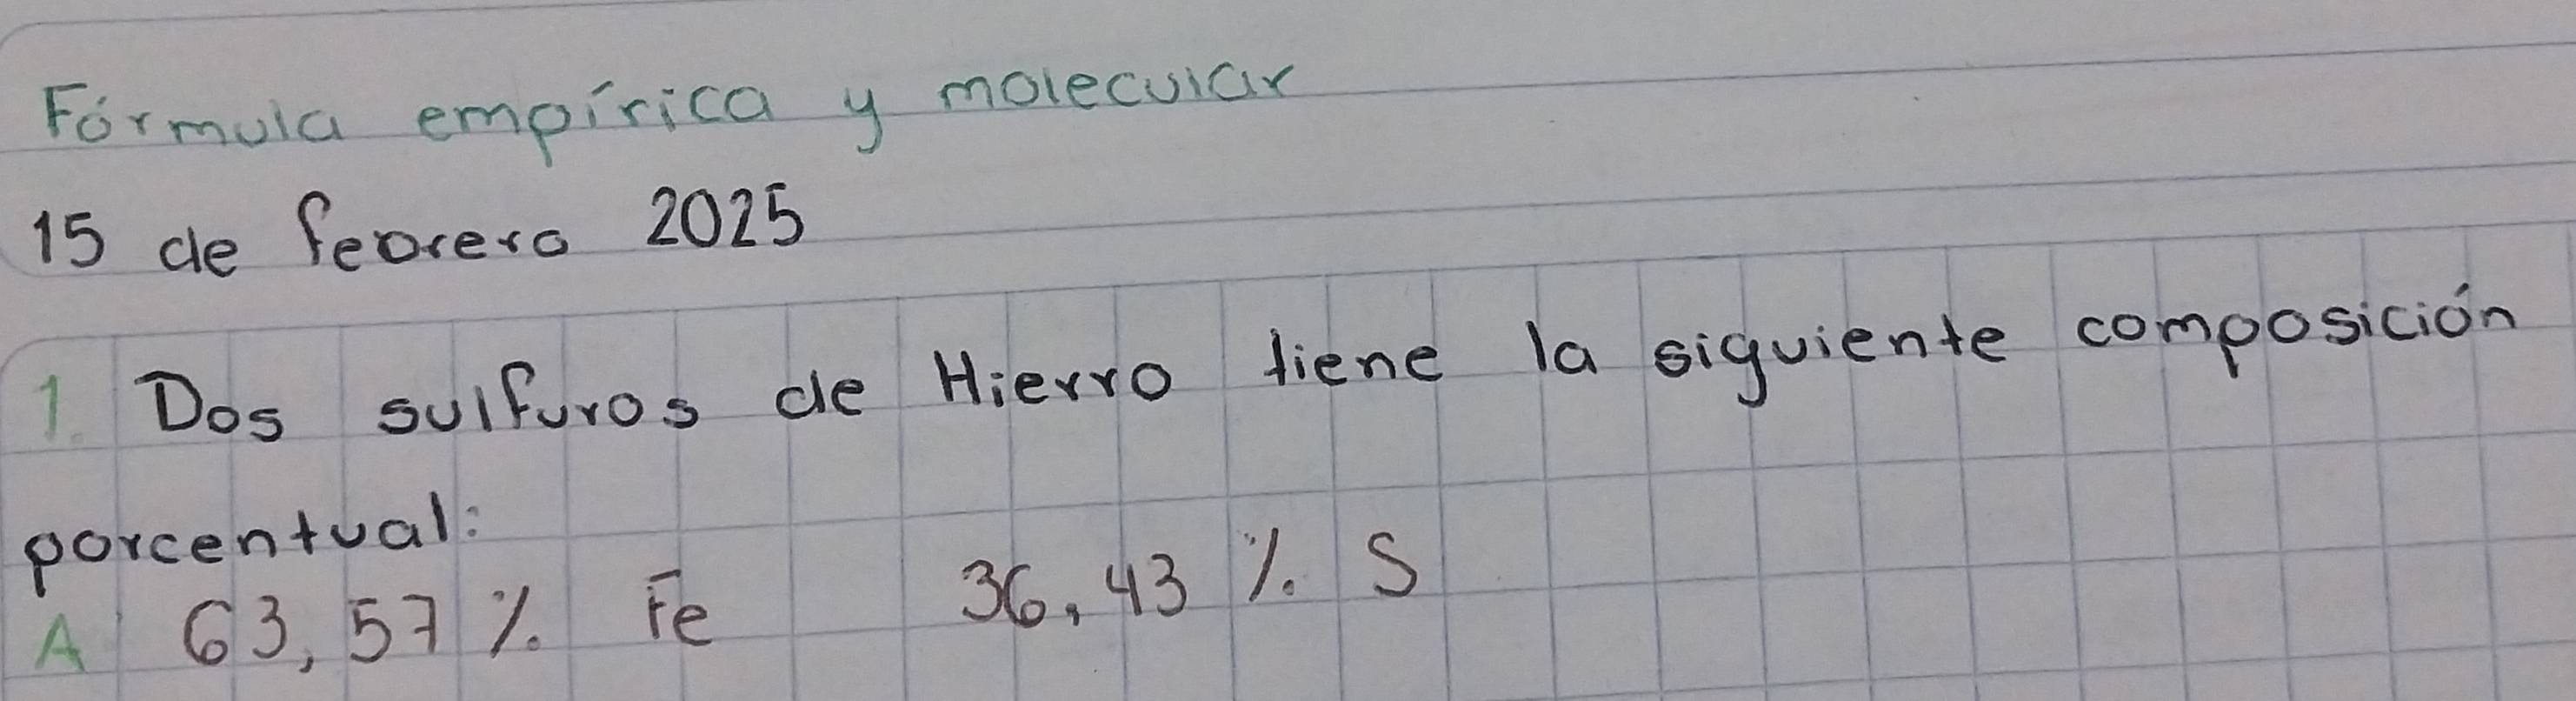 Fórmula empírica y molecular
15 de febrero 2025
1. Dos sulfuros de Hierro tiene la siguiente composición
porcentual:
A 63,57 % Fe 36,43 % S